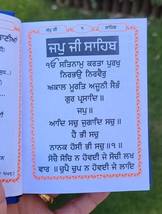 ਜਪੁ ਜੀ
ਸਾਹਿਬ
ਜਪੁ ਜੀ ਸਾਹਿਬ
ੴ ਸਤਿਨਾਮੁ ਕਰਤਾ ਪੁਰਖੁ
ਨਿਰਭਉ ਨਿਰਵੈਰੁ
ਅਕਾਲ ਮੂਰਤਿ ਅਜੂਨੀ ਸੈਭੰ
ਗੁਰ ਪ੍ਰਸਾਦਿ ॥
ਜਪੁ ॥
ਆਦਿ ਸਚੁ ਜੁਗਾਦਿ ਸਚੁ ॥
ਹੈ ਭੀ ਸਚੁ
ਨਾਨਕ ਹੋਸੀ ਭੀ ਸਚੁ ॥੧॥
ਸੋਚੈ ਸੋਚਿ ਨ ਹੋਵਈ ਜੇ ਸੋਚੀ ਲਖ
ਵਾਰ ॥ ਚੁਪੈ ਚੁਪ ਨ ਹੋਵਈ ਜੇ ਲਾਇ